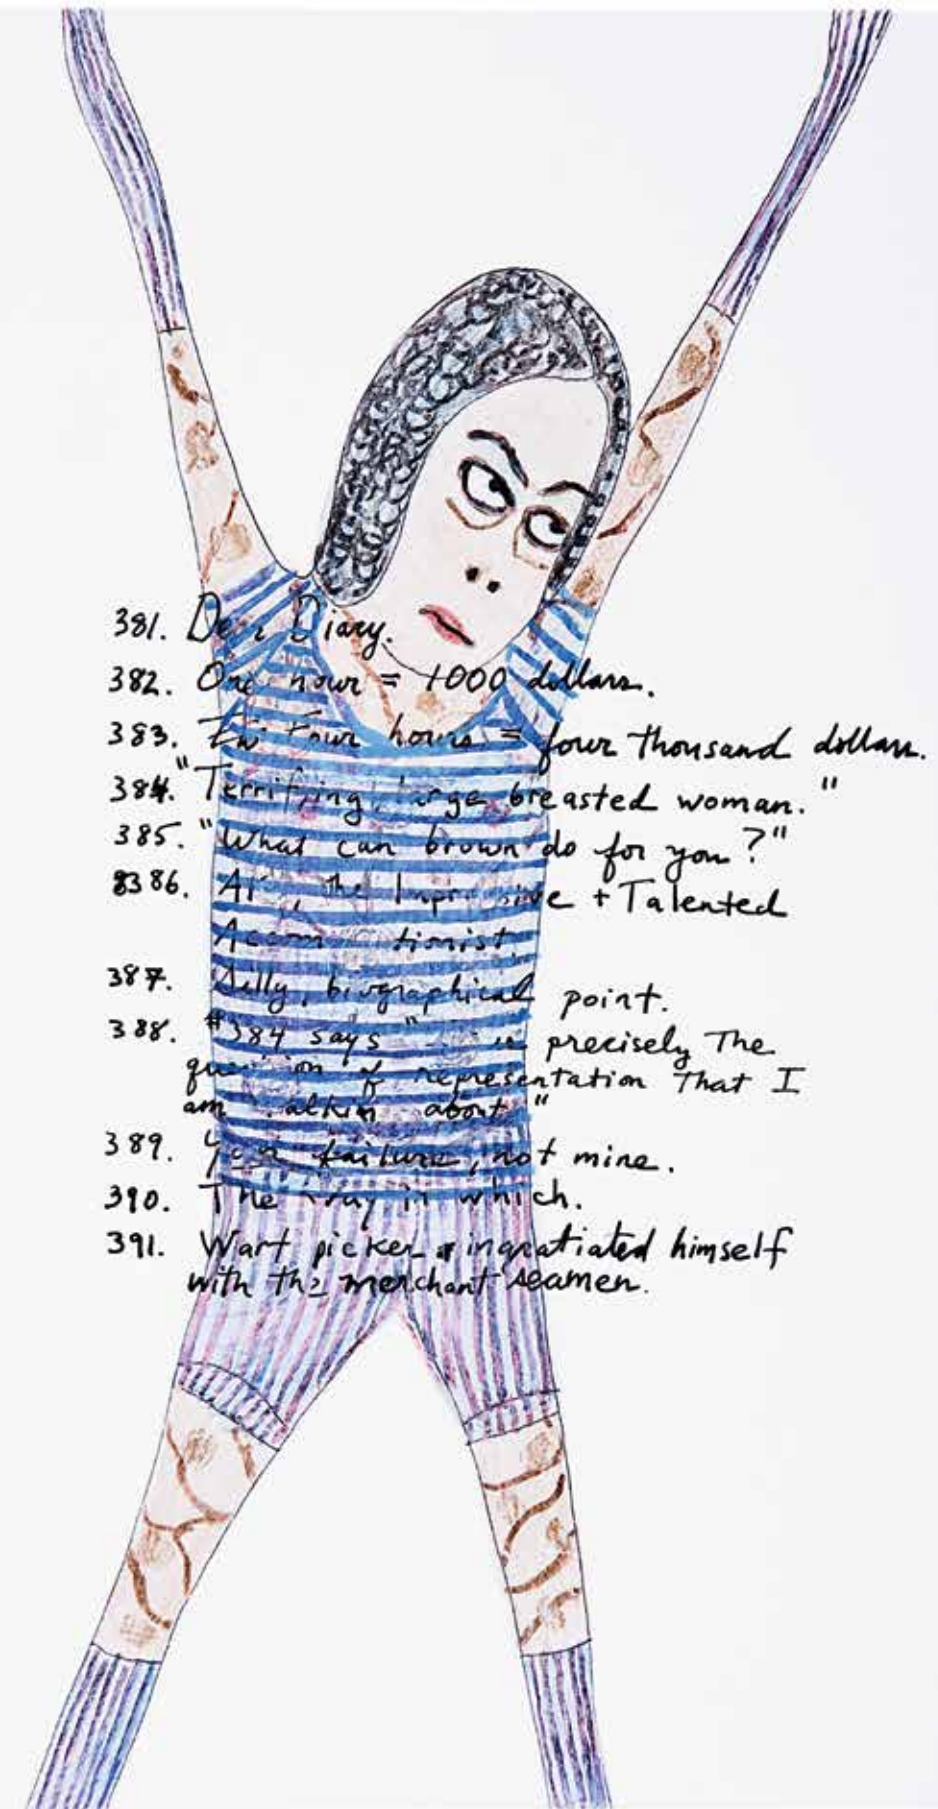 381. Dear Diary.
382. One hour = 1000 dollars.
383. four hours = four thousand dollars.
384. "Terrifying, large breasted woman."
385. "What can brown do for you?"
8386. the Impressive + Talented
Accommodationist.
387. Silly, biographical point.
388. #384 says " is precisely The
question of representation That I
am talkin about"
389. Your failure, not mine.
390. The way in which.
391. Wart picker ingratiated himself
with the merchant seamen.